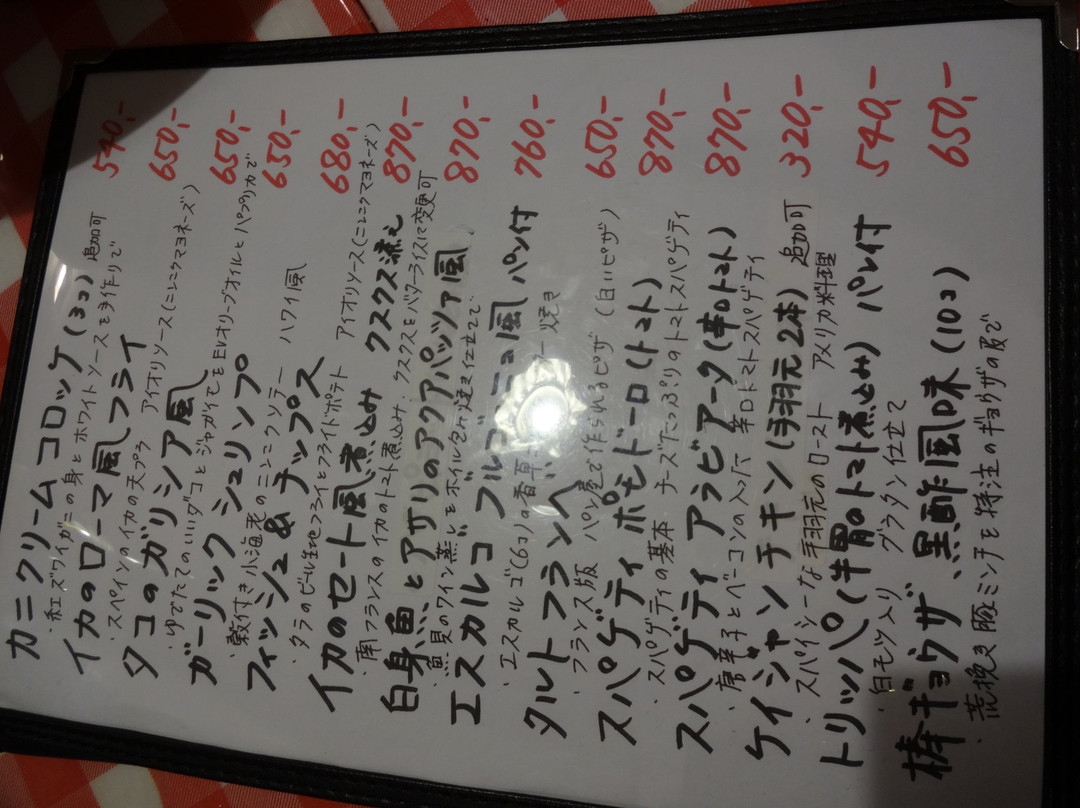 カニクリームコロッケ(3コ) 追加可 540.-
・紅ズワイガニの身とホワイトソースを手作りで
イカのローマ風フライ 650.-
・スペインのイカの天プラ アイオリソース(ニンニクマヨネーズ)
タコのガリシア風 650.-
・ゆでたてのいいダコとジャガイモをEVオリーブオイルとパプリカで
ガーリックシュリンプ 650.-
・殻付き小海老のニンニクソテー ハワイ風
フィッシュ&チップス 680.-
・タラのビール生地フライとフライドポテト アイオリソース(ニンニクマヨネーズ)
イカのセート風煮込み クスクス添え 870.-
・南フランスのイカのトマト煮込み。クスクスをバターライスに変更可
白身魚とアサリのアクアパッツァ風 870.-
・魚貝のワイン蒸しをホイル包み焼き仕立てで
エスカルゴ ブルゴーニュ風 パン付 760.-
・エスカルゴ(6コ)の香草 焼き
タルトフランベ 650.-
・フランス版 パン屋で作られるピザ (白いピザ)
スパゲティ ポモドーロ(トマト) 870.-
・スパゲティの基本 チーズたっぷりのトマトスパゲティ
スパゲティ アラビアータ(辛口トマト) 870.-
・唐辛子とベーコンの入った 辛口トマトスパゲティ
ケイジャンチキン(手羽元2本) 追加可 320.-
・スパイシーな手羽元のロースト アメリカ料理
トリッパ(牛胃のトマト煮込み) パン付 540.-
・白モツ入り グラタン仕立て
棒ギョウザ 黒酢風味(10コ) 650.-
・荒挽き豚ミンチを特注のギョウザの皮で